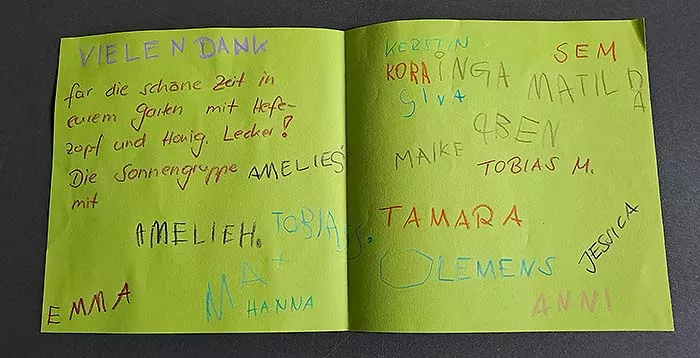 VIELEN DANK
für die schöne Zeit in
eurem Garten mit Hefe-
zopf und Honig. Lecker!
Die Sonnengruppe AMELIE S.
mit
AMELIE H.
TOBIAS S.
EMMA
MAX
HANNA
KERSTIN
SEM
KORA
INGA
MATILDA
GINA
BEN
MAIKE
TOBIAS M.
TAMARA
JESSICA
CLEMENS
ANNI